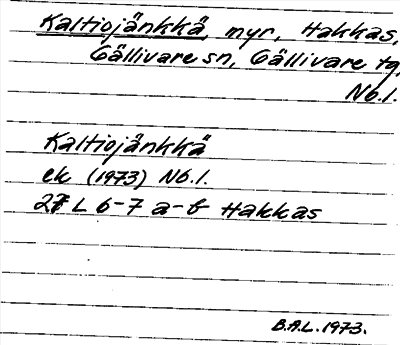 Kaltiojänkkä, myr, Hakkas,
Gällivare sn, Gällivare tg,
Nb.l.
Kaltiojänkkä
ek (1973) Nb.l.
27 L 6-7 a-b Hakkas
B.A.L. 1973.